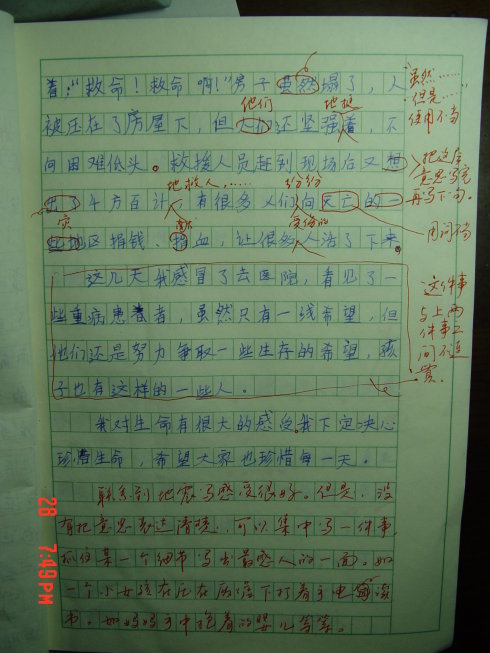 着:"救命！救命啊!"房子虽然塌了，人
被压在了房屋下，但人们还坚强着，不
他们
地挺
向困难低头。救援人员赶到现场后又想
出了千方百计，有很多人们向灭亡的一
地救人，……
纷纷
些地区捐钱、捐血，让很多人活了下来。
灾
献
受伤的
这几天我感冒了去医院，看见了一
些重病患者，虽然只有一线希望，但
他们还是努力争取一些生存的希望，孩
子也有这样的一些人。
我对生命有很大的感受。我下定决心
珍惜生命，希望大家也珍惜每一天。
联系到地震写感受很好。但是，没
有把意思表达清楚，可以集中写一件事，
抓住某一个细节写出最感人的一面。如
一个小女孩在压在废墟下打着手电读
书。如妈妈手中抱着的婴儿等等。
虽然……
但是……
使用不当
把这层
意思写完
再写下句。
用词不当
这件事
与上两
件事之
间不连
贯。
28 7:49PM